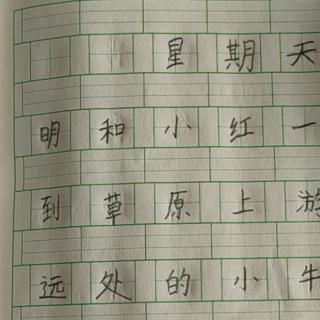 星期天
明和小红一
到草原上游
远处的小牛